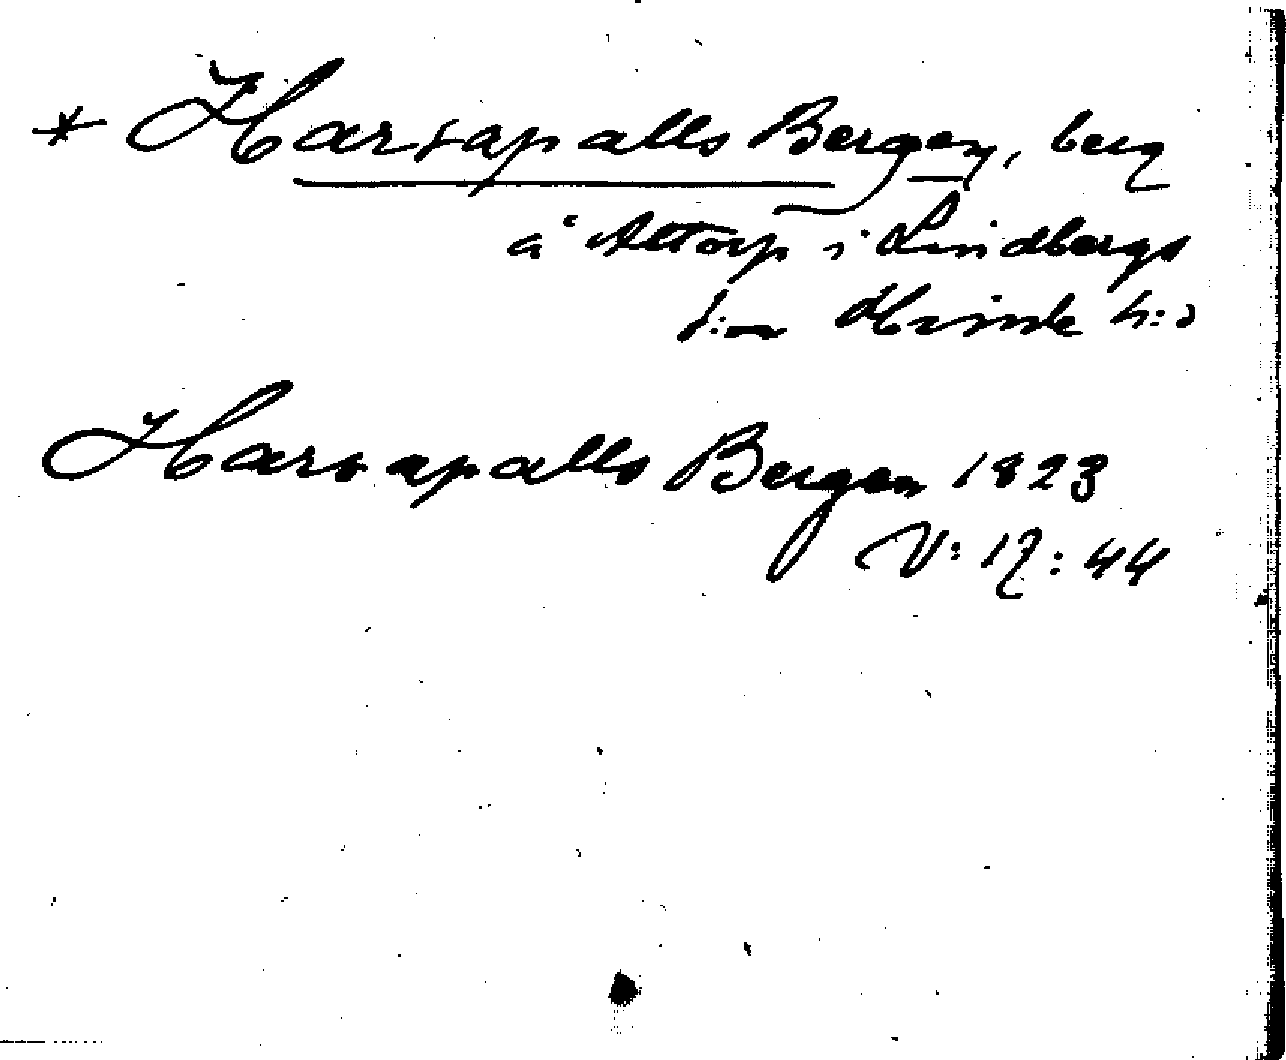 * Harsapalls Bergen, berg
å Attorp i Lindbergs
s:n Himle h:d
Harsapalls Bergen 1823
V: 17: 44